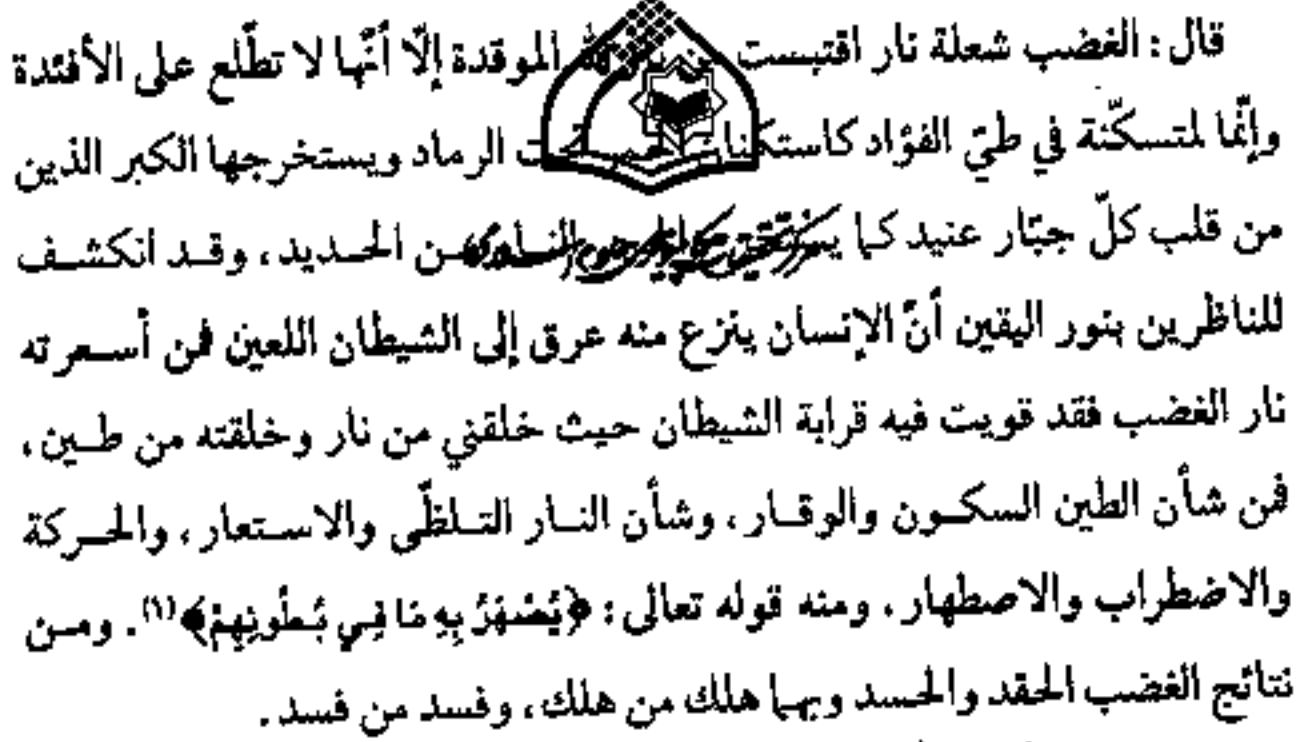 قال: الغضب شعلة نار اقتبست من نار الله الموقدة إلّا أنّها لا تطّلع على الأفئدة
وإنّها لمتسكّنة في طيّ الفؤاد كاستكنان تحت الرماد ويستخرجها الكبر الذين
من قلب كلّ جبّار عنيد كما النار من الحديد، وقد انكشف
للناظرين بنور اليقين أنّ الإنسان ينزع منه عرق إلى الشيطان اللعين فمن أسعرته
نار الغضب فقد قويت فيه قرابة الشيطان حيث خلقني من نار وخلقته من طين،
فمن شأن الطين السكون والوقار، وشأن النار التلظّى والاستعار، والحركة
والاضطراب والاصطهار، ومنه قوله تعالى: ﴿يُصْهَرُ بِهِ مَا فِي بُطُونِهِمْ﴾(١). ومن
نتائج الغضب الحقد والحسد وبهما هلك من هلك، وفسد من فسد.